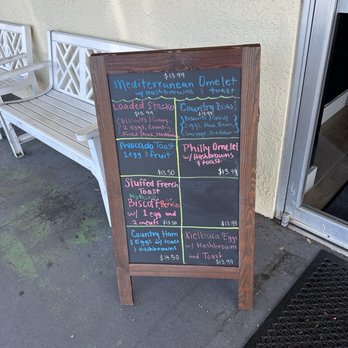 $13.99
Mediterranean Omelet
w/ Hashbrowns & toast
Loaded
$15.99
(Biscuits/Gravy
2 eggs, Country
Fried Steak, Hashbrowns)
Country Bowl
$13.99
(Biscuits/Gravy
Eggs, Home Browns
Avocado Toast
1 egg & fruit
$13.50
Philly Omelet
w/ Hashbrowns
& toast
$13.99
Stuffed French
Toast
Biscuit
w/ 1 egg and
2 meats $13.50
$13.99
Country Ham
2 Eggs w/ toast
& Hashbrowns
$14.50
Kielbasa & Eggs
w/ Hashbrowns
and Toast
$13.99